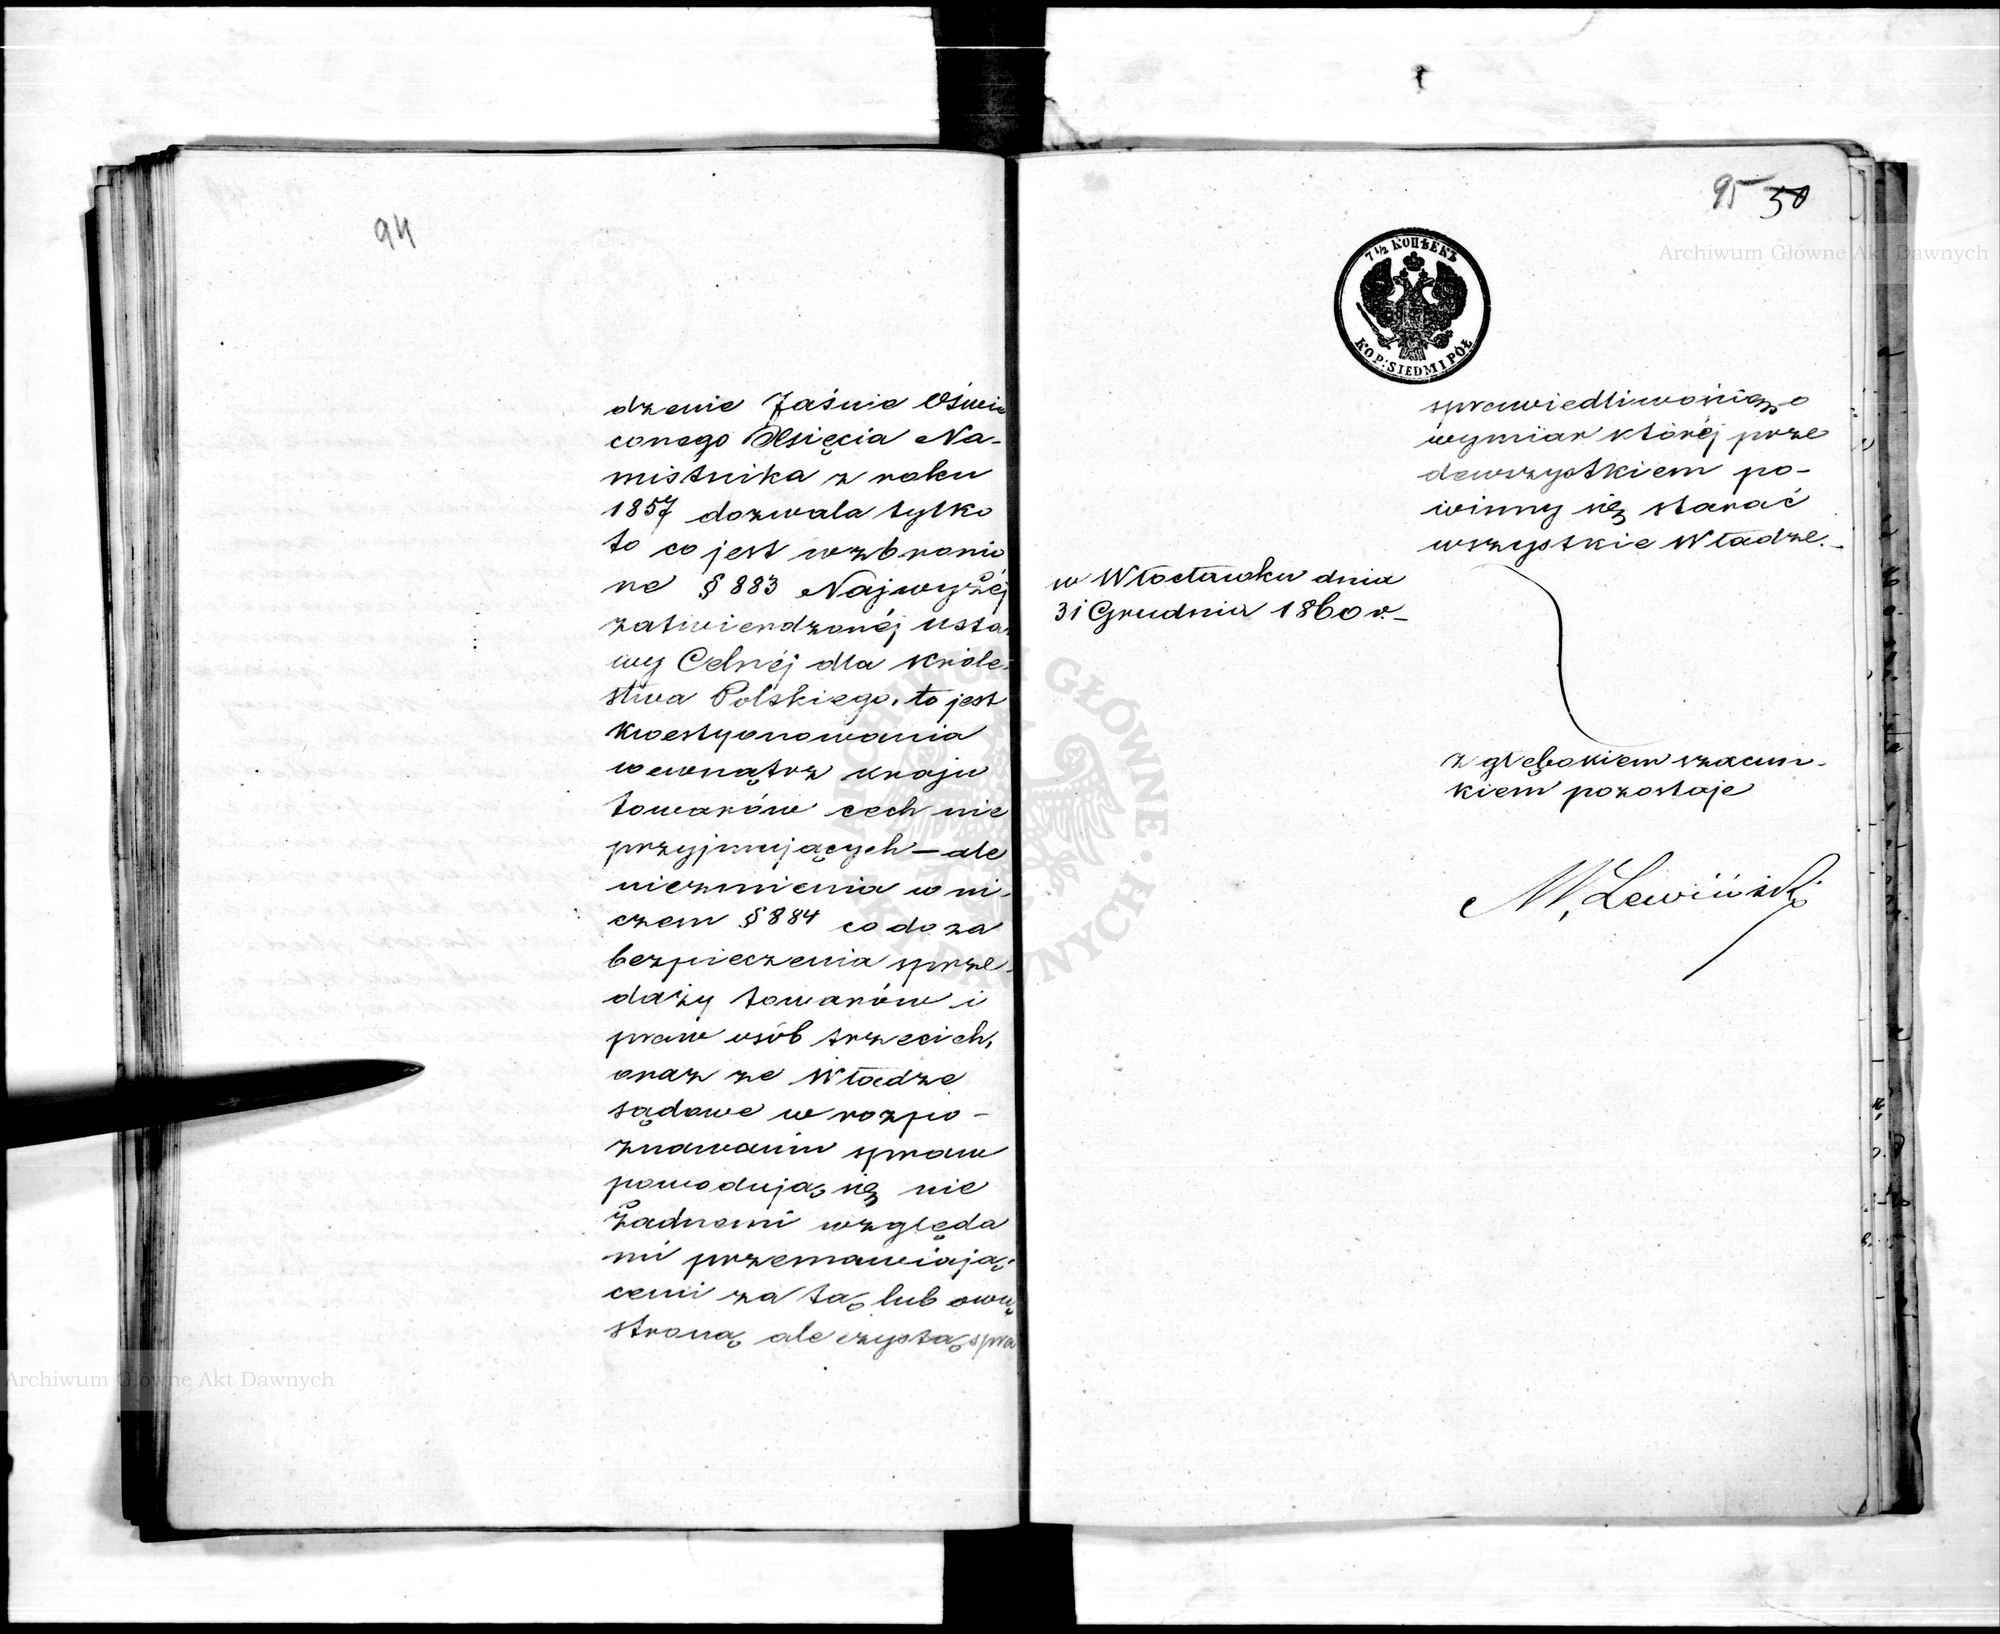 94
dzenie Jaśnie Oświe
conego Księcia Na-
mistnika z roku
1857 dozwala tylko
to co jest wzbronio
ne § 883 Najwyżéj
zatwierdzonéj usta-
wy Celnéj dla Króle-
stwa Polskiego, to jest
kwestyonowania
wewnątrz kraju
towarów cech nie
przyjmujących — ale
niezmienia w ni-
czem § 884 co do za
bezpieczenia sprze-
daży towarów i
praw osób trzecich,
oraz że Władze
sądowe w rozpo-
znawaniu spraw
powodują się nie
żadnemi względa
mi przemawiają-
cemi za tą lub ową
stroną ale czystą spra
95 50
7 1/2 КОПѢЕКЪ
KOP: SIEDM I PÓŁ
sprawiedliwością o
wymiar któréj prze
dewszystkiem po-
winny się starać
wszystkie Władze.-
w Włocławku dnia
31 Grudnia 1860 r.-
z głębokiem szacun-
kiem pozostaje
M. Lewiński
Archiwum Główne Akt Dawnych
ARCHIWUM GŁÓWNE AKT DAWNYCH
Archiwum Główne Akt Dawnych